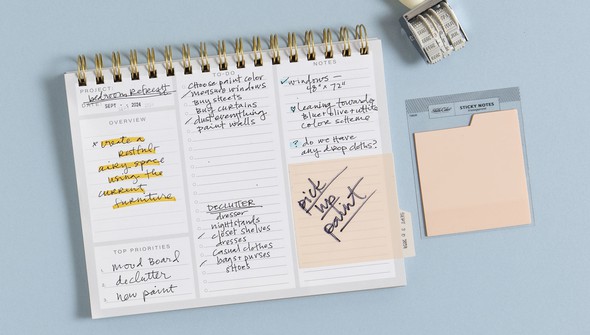 PROJECT:
bedroom Refresh
DATE: SEPT 1 2024
OVERVIEW
* create a
restful
airy space
using the
current
furniture
TOP PRIORITIES
mood board
declutter
new paint
TO-DO
choose paint color
✓ measure windows
buy sheets
buy curtains
✓ dust everything
paint walls
DECLUTTER
dresser
nightstands
✓ closet shelves
dresses
casual clothes
✓ bags + purses
shoes
NOTES
✓ windows —
48" x 72"
leaning towards
blue + olive + white
color scheme
? do we have
any drop cloths?
pick
up
paint
STICKY NOTES